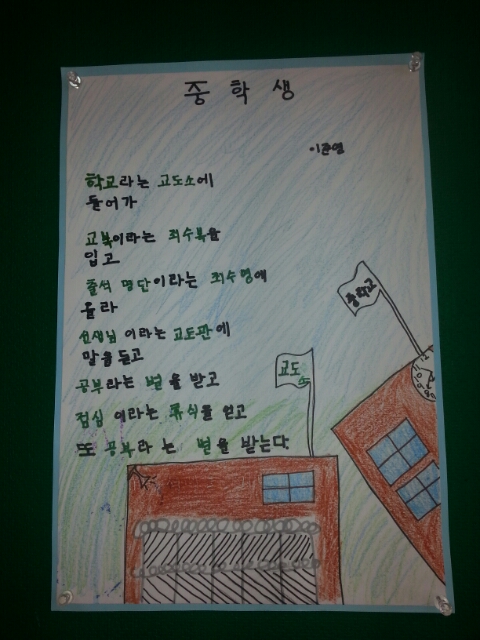 중 학 생
이준영
학교라는 교도소에
들어가
교복이라는 죄수복을
입고
출석 명단이라는 죄수명에
올라
선생님 이라는 교도관에
말을 듣고
공부라는 벌을 받고
점심 이라는 휴식을 얻고
또 공부라 는 벌을 받는다
중학교
교도
소